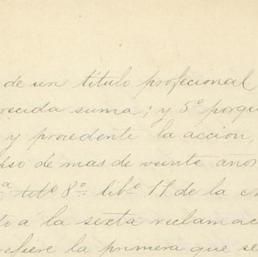 de un titulo profecional
recida suma; y 5º porque
y procedente la accion,
de mas de veinte años
titº 8º libº 11 de la
to a la sexta reclamac
fiere la primera que se